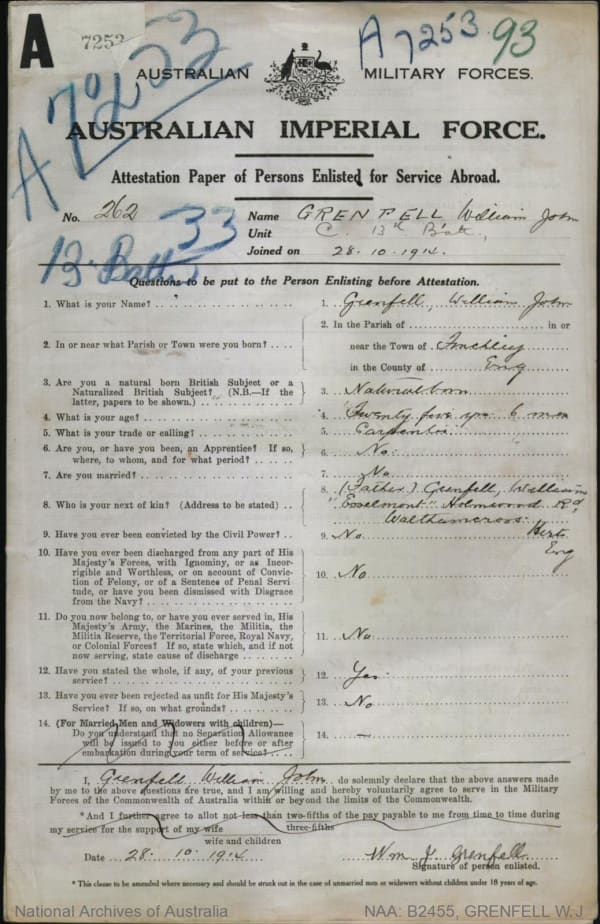 A
7253
A 7253
A 7253 93
AUSTRALIAN MILITARY FORCES.
AUSTRALIAN IMPERIAL FORCE.
Attestation Paper of Persons Enlisted for Service Abroad.
No. 262 Name GRENFELL William John
33 Unit C. 13th Batt,
13. Battn Joined on 28.10.1914.
Questions to be put to the Person Enlisting before Attestation.
1. What is your Name? 1. Grenfell, William John
2. In or near what Parish or Town were you born? 2. In the Parish of in or
near the Town of Finchley
in the County of Eng
3. Are you a natural born British Subject or a
Naturalized British Subject? (N.B.—If the
latter, papers to be shown.) 3. Natural born
4. What is your age? 4. Twenty five yrs 6 mon
5. What is your trade or calling? 5. Carpenter
6. Are you, or have you been, an Apprentice? If so,
where, to whom, and for what period? 6. No.
7. Are you married? 7. No
8. Who is your next of kin? (Address to be stated) 8. (Father) Grenfell, William
Holmwood Rd
Walthamcross. Herts
Eng
9. Have you ever been convicted by the Civil Power? 9. No
10. Have you ever been discharged from any part of His
Majesty's Forces, with Ignominy, or as Incor-
rigible and Worthless, or on account of Convic-
tion of Felony, or of a Sentence of Penal Servi-
tude, or have you been Dismissed with Disgrace
from the Navy? 10. No
11. Do you now belong to, or have you ever served in, His
Majesty's Army, the Marines, the Militia, the
Militia Reserve, the Territorial Force, Royal Navy,
or Colonial Forces? If so, state which, and if not
now serving, state cause of discharge 11. No
12. Have you stated the whole, if any, of your previous
service? 12. Yes.
13. Have you ever been rejected as unfit for His Majesty's
Service? If so, on what grounds? 13. No
14. (For Married Men and Widowers with children)—
Do you understand that no Separation Allowance
will be issued to you either before or after
embarkation during your term of service? 14. —
I, Grenfell William John do solemnly declare that the above answers made
by me to the above questions are true, and I am willing and hereby voluntarily agree to serve in the Military
Forces of the Commonwealth of Australia within or beyond the limits of the Commonwealth.
*And I further agree to allot not less than two-fifths of the pay payable to me from time to time during
three-fifths
my service for the support of my wife
wife and children
Date 28. 10. 1914. Wm J. Grenfell
Signature of person enlisted.
* This clause to be amended where necessary and should be struck out in the case of unmarried men or widowers without children under 18 years of age.
National Archives of Australia NAA: B2455, GRENFELL W J